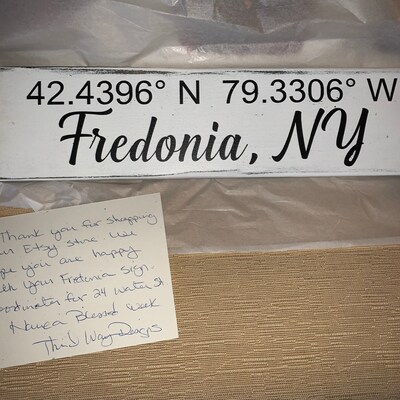 42.4396° N 79.3306° W
Fredonia, NY
Thank you for shopping
our Etsy store. We
hope you are happy
with your Fredonia sign.
Coordinates for 24 Water St
Have a Blessed week
Third Way Designs